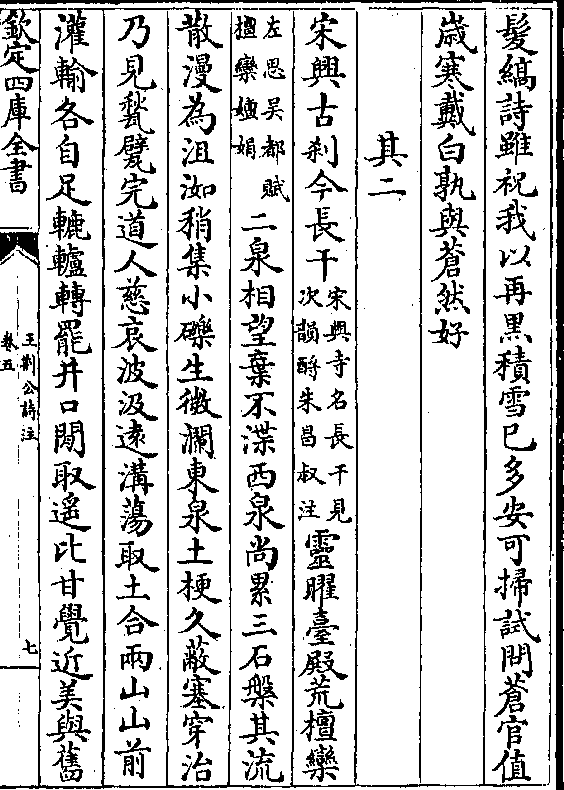 髮縞詩雖祝我以再黑積雪已多安可掃試問蒼官值
歳寒戴白孰與蒼然好
其二
宋興古刹今長干宋興寺名長干見次韻酧朱昌叔注靈曜臺殿荒檀欒
左思吳都賦檀欒嬋娟二泉相望棄不渫西泉尚累三石槃其流
散漫為沮洳稍集小礫生微瀾東泉土梗久蔽塞穿治
乃見甃甓完道人慈哀波汲遠溝蕩取土合兩山山前
灌輸各自足轆轤轉罷井口閒取遥比甘覺近美與舊
欽定四庫全書
王荆公詩注
卷五
七